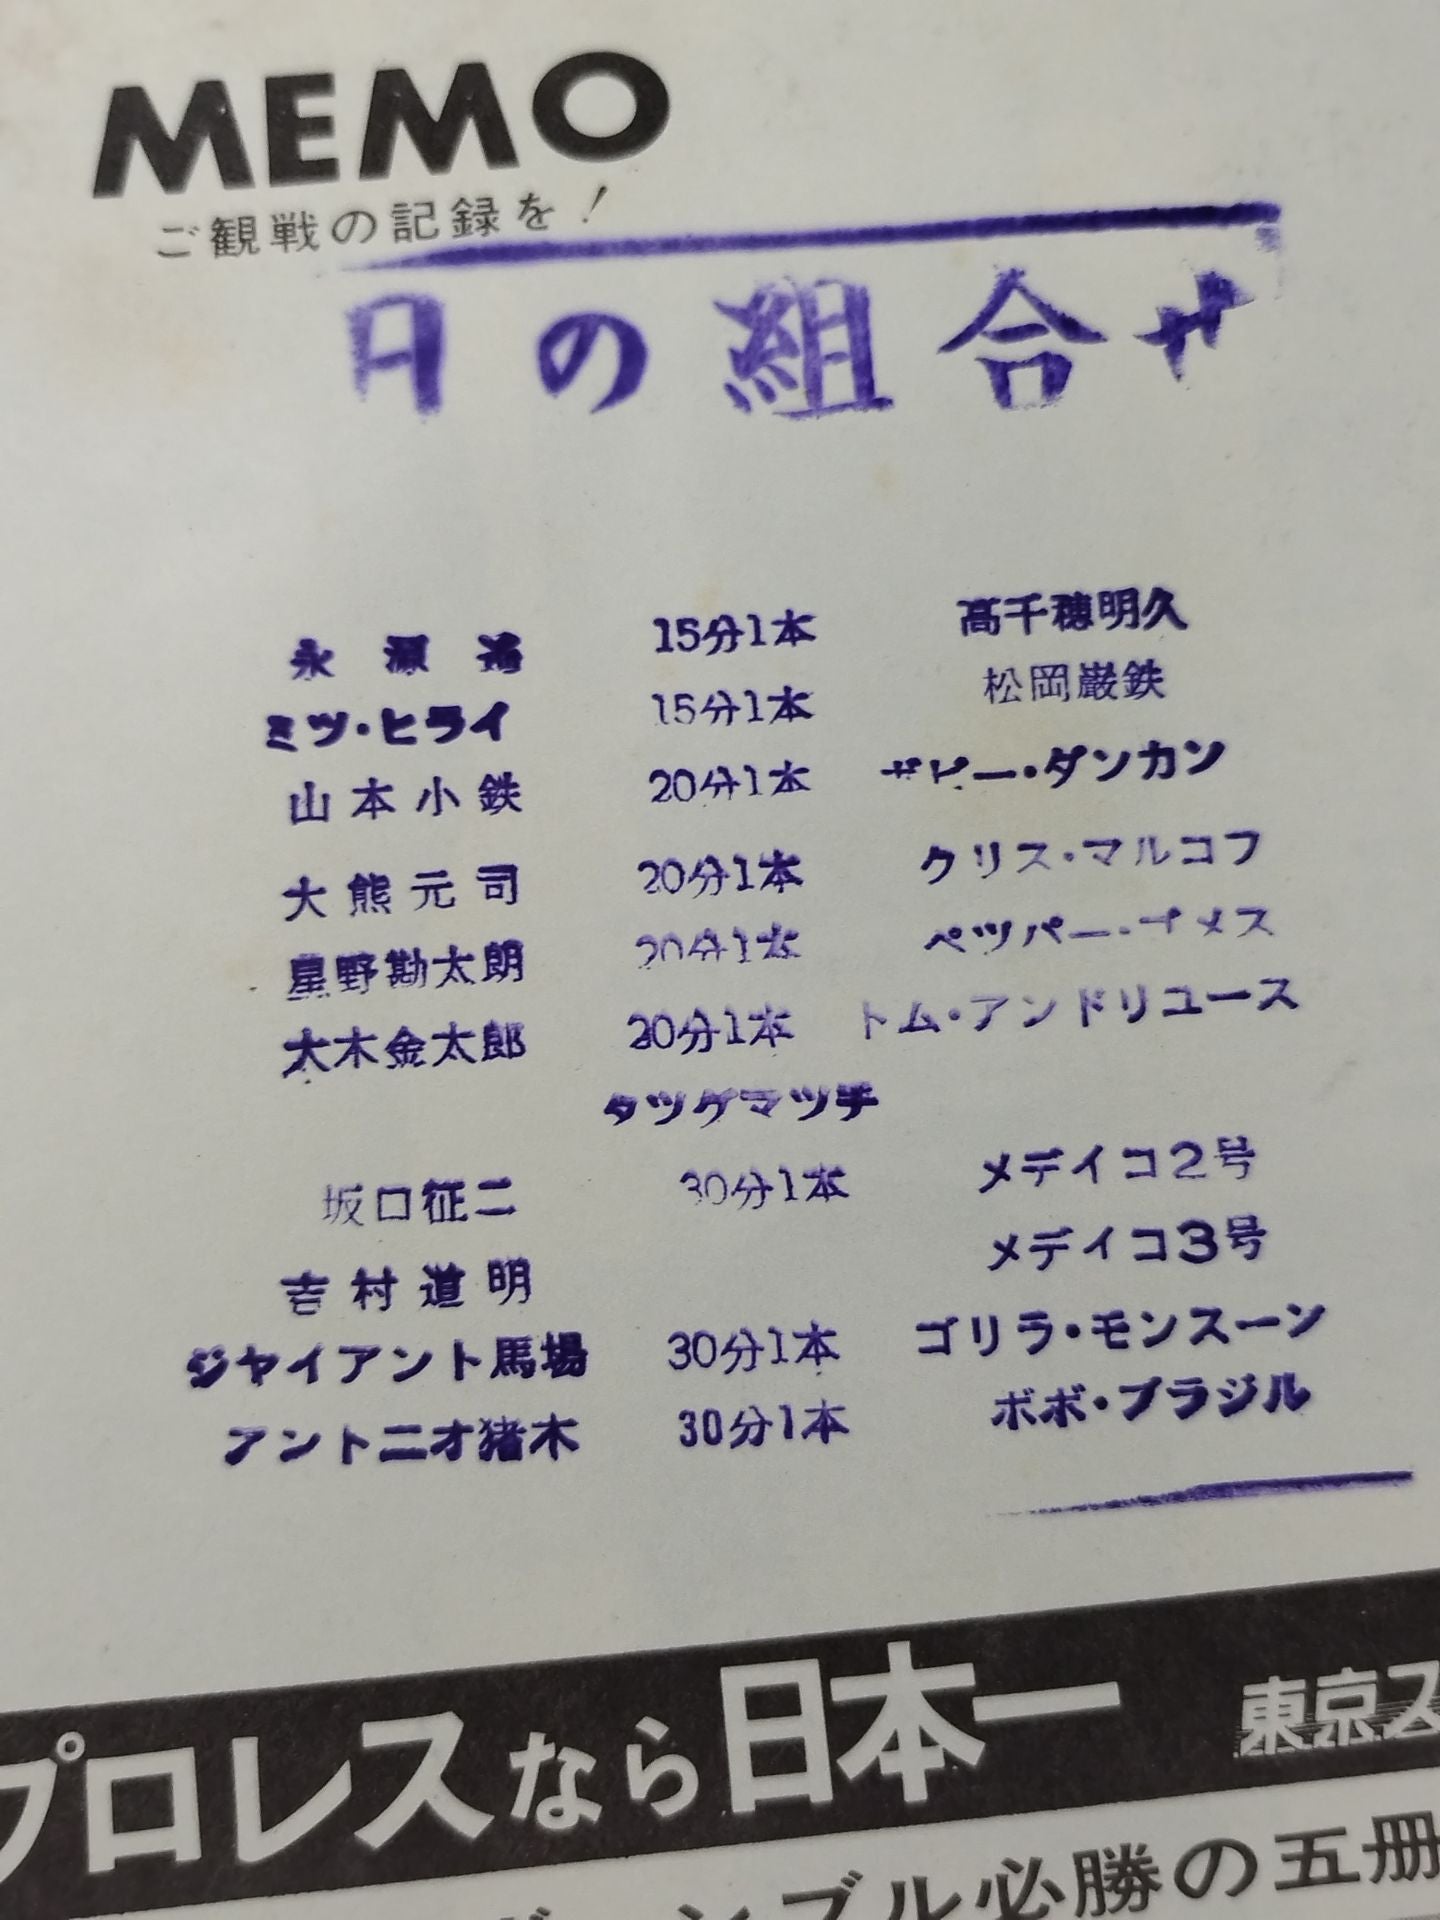 MEMO
ご観戦の記録を!
日の組合せ
永源遙 15分1本 高千穂明久
ミツ・ヒライ 15分1本 松岡巌鉄
山本小鉄 20分1本 ボビー・ダンカン
大熊元司 20分1本 クリス・マルコフ
星野勘太朗 20分1本 ペツパー・ゴメス
大木金太郎 20分1本 トム・アンドリユース
タツグマツチ
坂口征二 30分1本 メデイコ2号
吉村道明 メデイコ3号
ジヤイアント馬場 30分1本 ゴリラ・モンスーン
アントニオ猪木 30分1本 ボボ・ブラジル
プロレスなら日本一 東京ス
ブル必勝の五冊